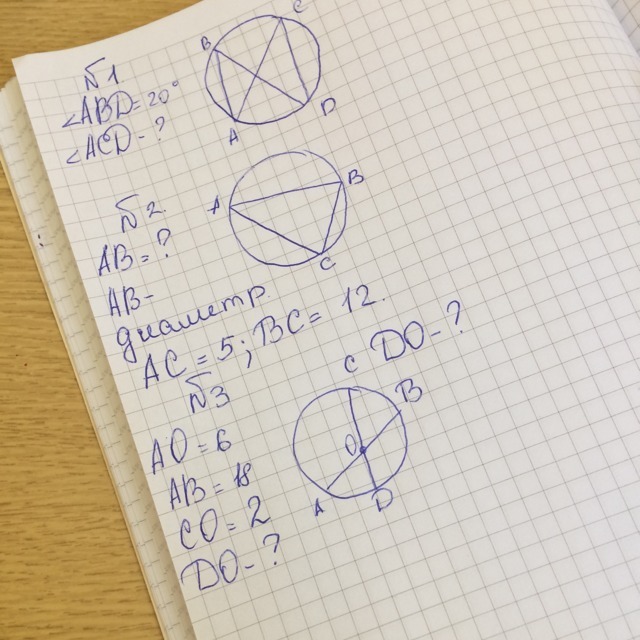 №1
∠ABD=20°
∠ACD-?
B
C
A
D
№2
AB=?
AB-
диаметр.
AC=5; BC=12.
A
B
C
№3
AO=6
AB=18
CO=2
DO-?
DO-?
C
B
O
A
D